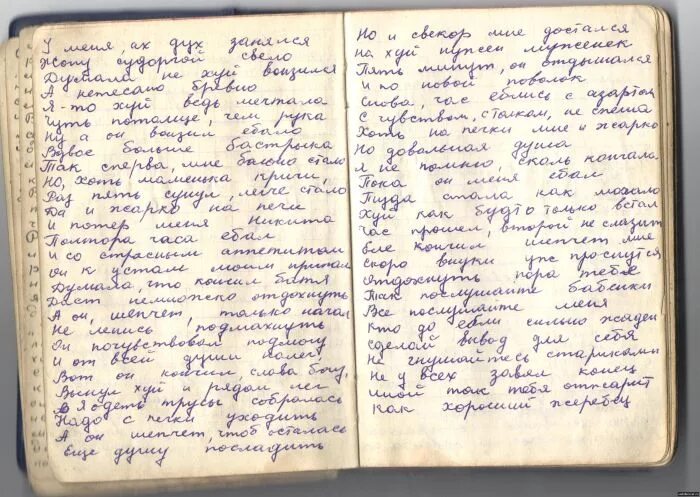 У меня, ах дух занялся
Жопу судоргой свело
Думала не хуй вонзился
А нетесано бревно
Я-то хуй ведь мечтала
Чуть потолще, чем рука
Ну а он вонзил ебало
Вдвое больше бастрыка
Так сперва, мне больно стало
Но, хоть маменька кричи,
Раз пять сунул, легче стало
Да и жарко на печи
И потер меня Никита
Полтора часа ебал
И со страсным аппетитом
Он к устам моим припал
Думала, что кончил битя
Даст немножко отдохнуть
А он, шепчет, только начал
Не ленись, подмахнуть
Он почувствовал подмогу
И от всей души налег
Вот он кончил, слава богу,
Вынул хуй и рядом лег
Я одеть трусы собралась
Надо с печки уходить
А он шепчет, чтоб осталась
Еще душу посладить
Но и свекор мне достался
На хуй нужен муженек
Пять минут, он отдышался
И по новой поволок
Снова, час еблись с азартом
С чувством, с толком, не спеша
Хоть на печки мне и жарко
Но довольная душа
Я не помню, сколь кончала
Пока он меня ебал
Пизда стала как мочало
Хуй как будто только встал
Час прошел, второй не слазит
Еле кончил шепчет мне
Скоро внуки уж проснутся
Отдохнуть пора тебе
Так послушайте бабенки
Все послушайте меня
Кто до ебли сильно жаден
Сделай вывод для себя
Не гнушайтесь стариками
Не у всех завял конец
Иной так тебя отшарит
Как хороший жеребец